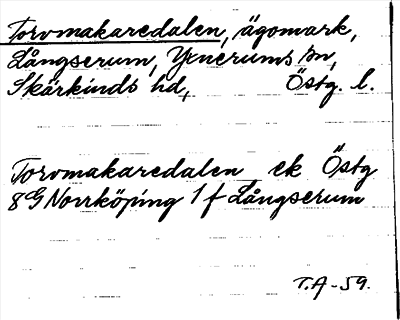 Torvmakaredalen, ägomark,
Långserum, Yxnerums sn,
Skärkinds hd, Östg. l.
Torvmakaredalen ek Östg
8G Norrköping 1 f Långserum
T.A-59.